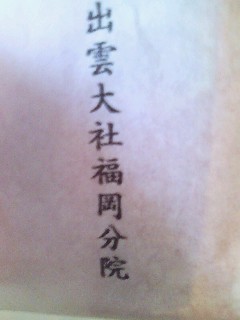 出雲大社福岡分院